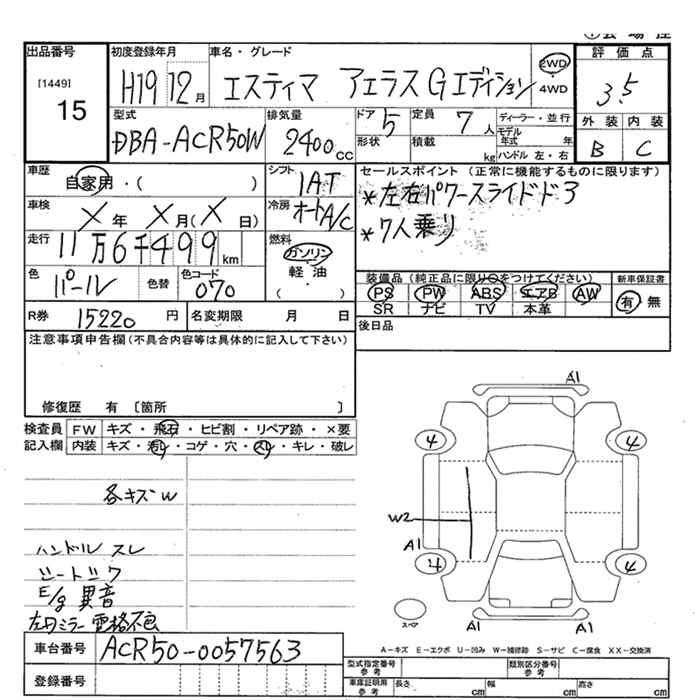 出品番号 初度登録年月 車名・グレード 評価点
[1449] 15 H19 12月 エスティマ アエラス G エディション 2WD 4WD 3.5
型式 排気量 ドア 5 定員 7人 ディーラー・並行 外装 内装
DBA-ACR50W 2400cc 形状 積載 kg モデル年式 年 ハンドル 左・右 B C
車歴 自家用・( ) シフト 1AT セールスポイント (正常に機能するものに限ります)
車検 X年 X月(X日) 冷房 オートA/C *左右パワースライドド
走行 11万6千499km 燃料 ガソリン 軽油 ( ) *7人乗り
色 パール 色替 色コード 070
装備品(純正品に限り○をつけてください) 新車保証書
PS PW ABS エアB AW 有 無
SR ナビ TV 本革
R券 15220円 名変期限 月 日 後日品
注意事項申告欄(不具合内容等は具体的に記入して下さい)
修復歴 有 〔箇所 〕
検査員 FW キズ・飛石・ヒビ割・リペア跡・×要
記入欄 内装 キズ・汚レ・コゲ・穴・スレ・キレ・破レ
A1
4 4
各キズW
W2
A1
ハンドル スレ
4 4
シート シワ
E/g 異音
スペア
左ドミラー 電格不良 A1 A1
A-キズ E-エクボ U-凹み W-補修跡 S-サビ C-腐食 XX-交換済
車台番号 ACR50-0057563
型式指定番号 参考 類別区分番号 参考
登録番号 車庫証明用 参考 長さ cm 幅 cm 高さ cm